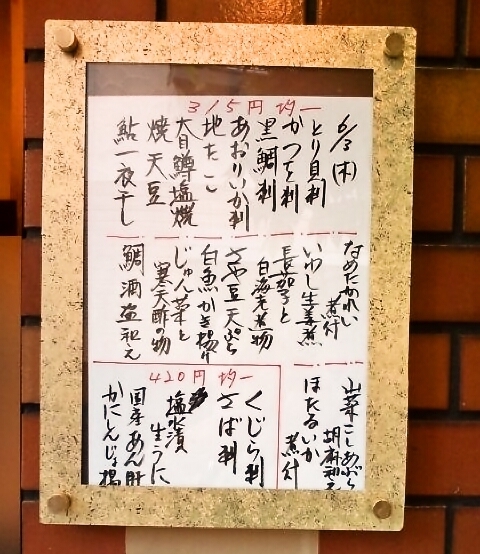 315円均一
6/3(木)
とり貝刺
かつを刺
黒鯛刺
あおりいか刺
地たこ
大目鱒塩焼
焼天豆
鮎一夜干し
なめたかれい
煮付
いわし生姜煮
長茄子と
白海老煮物
さや豆天ぷら
白魚かき揚げ
じゅん菜と
寒天酢の物
鯛酒盗和え
山菜こしあぶら
胡麻和え
ほたるいか
煮付
420円均一
くじら刺
さば刺
塩水漬
生うに
国産あん肝
かにしんじょ揚